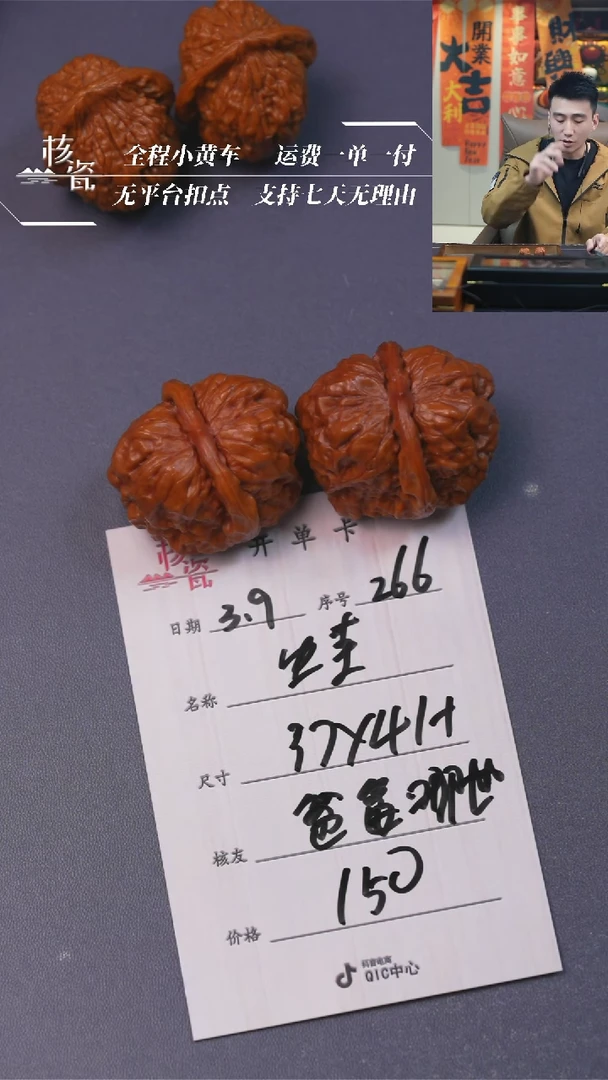 核瓷
全程小黄车 运费一单一付
无平台扣点 支持七天无理由
開業
大吉
大利
事事如意
核瓷
开单卡
日期 3.9 序号 266
名称
尺寸 37X41+
核友
价格 150
抖音电商
QIC中心